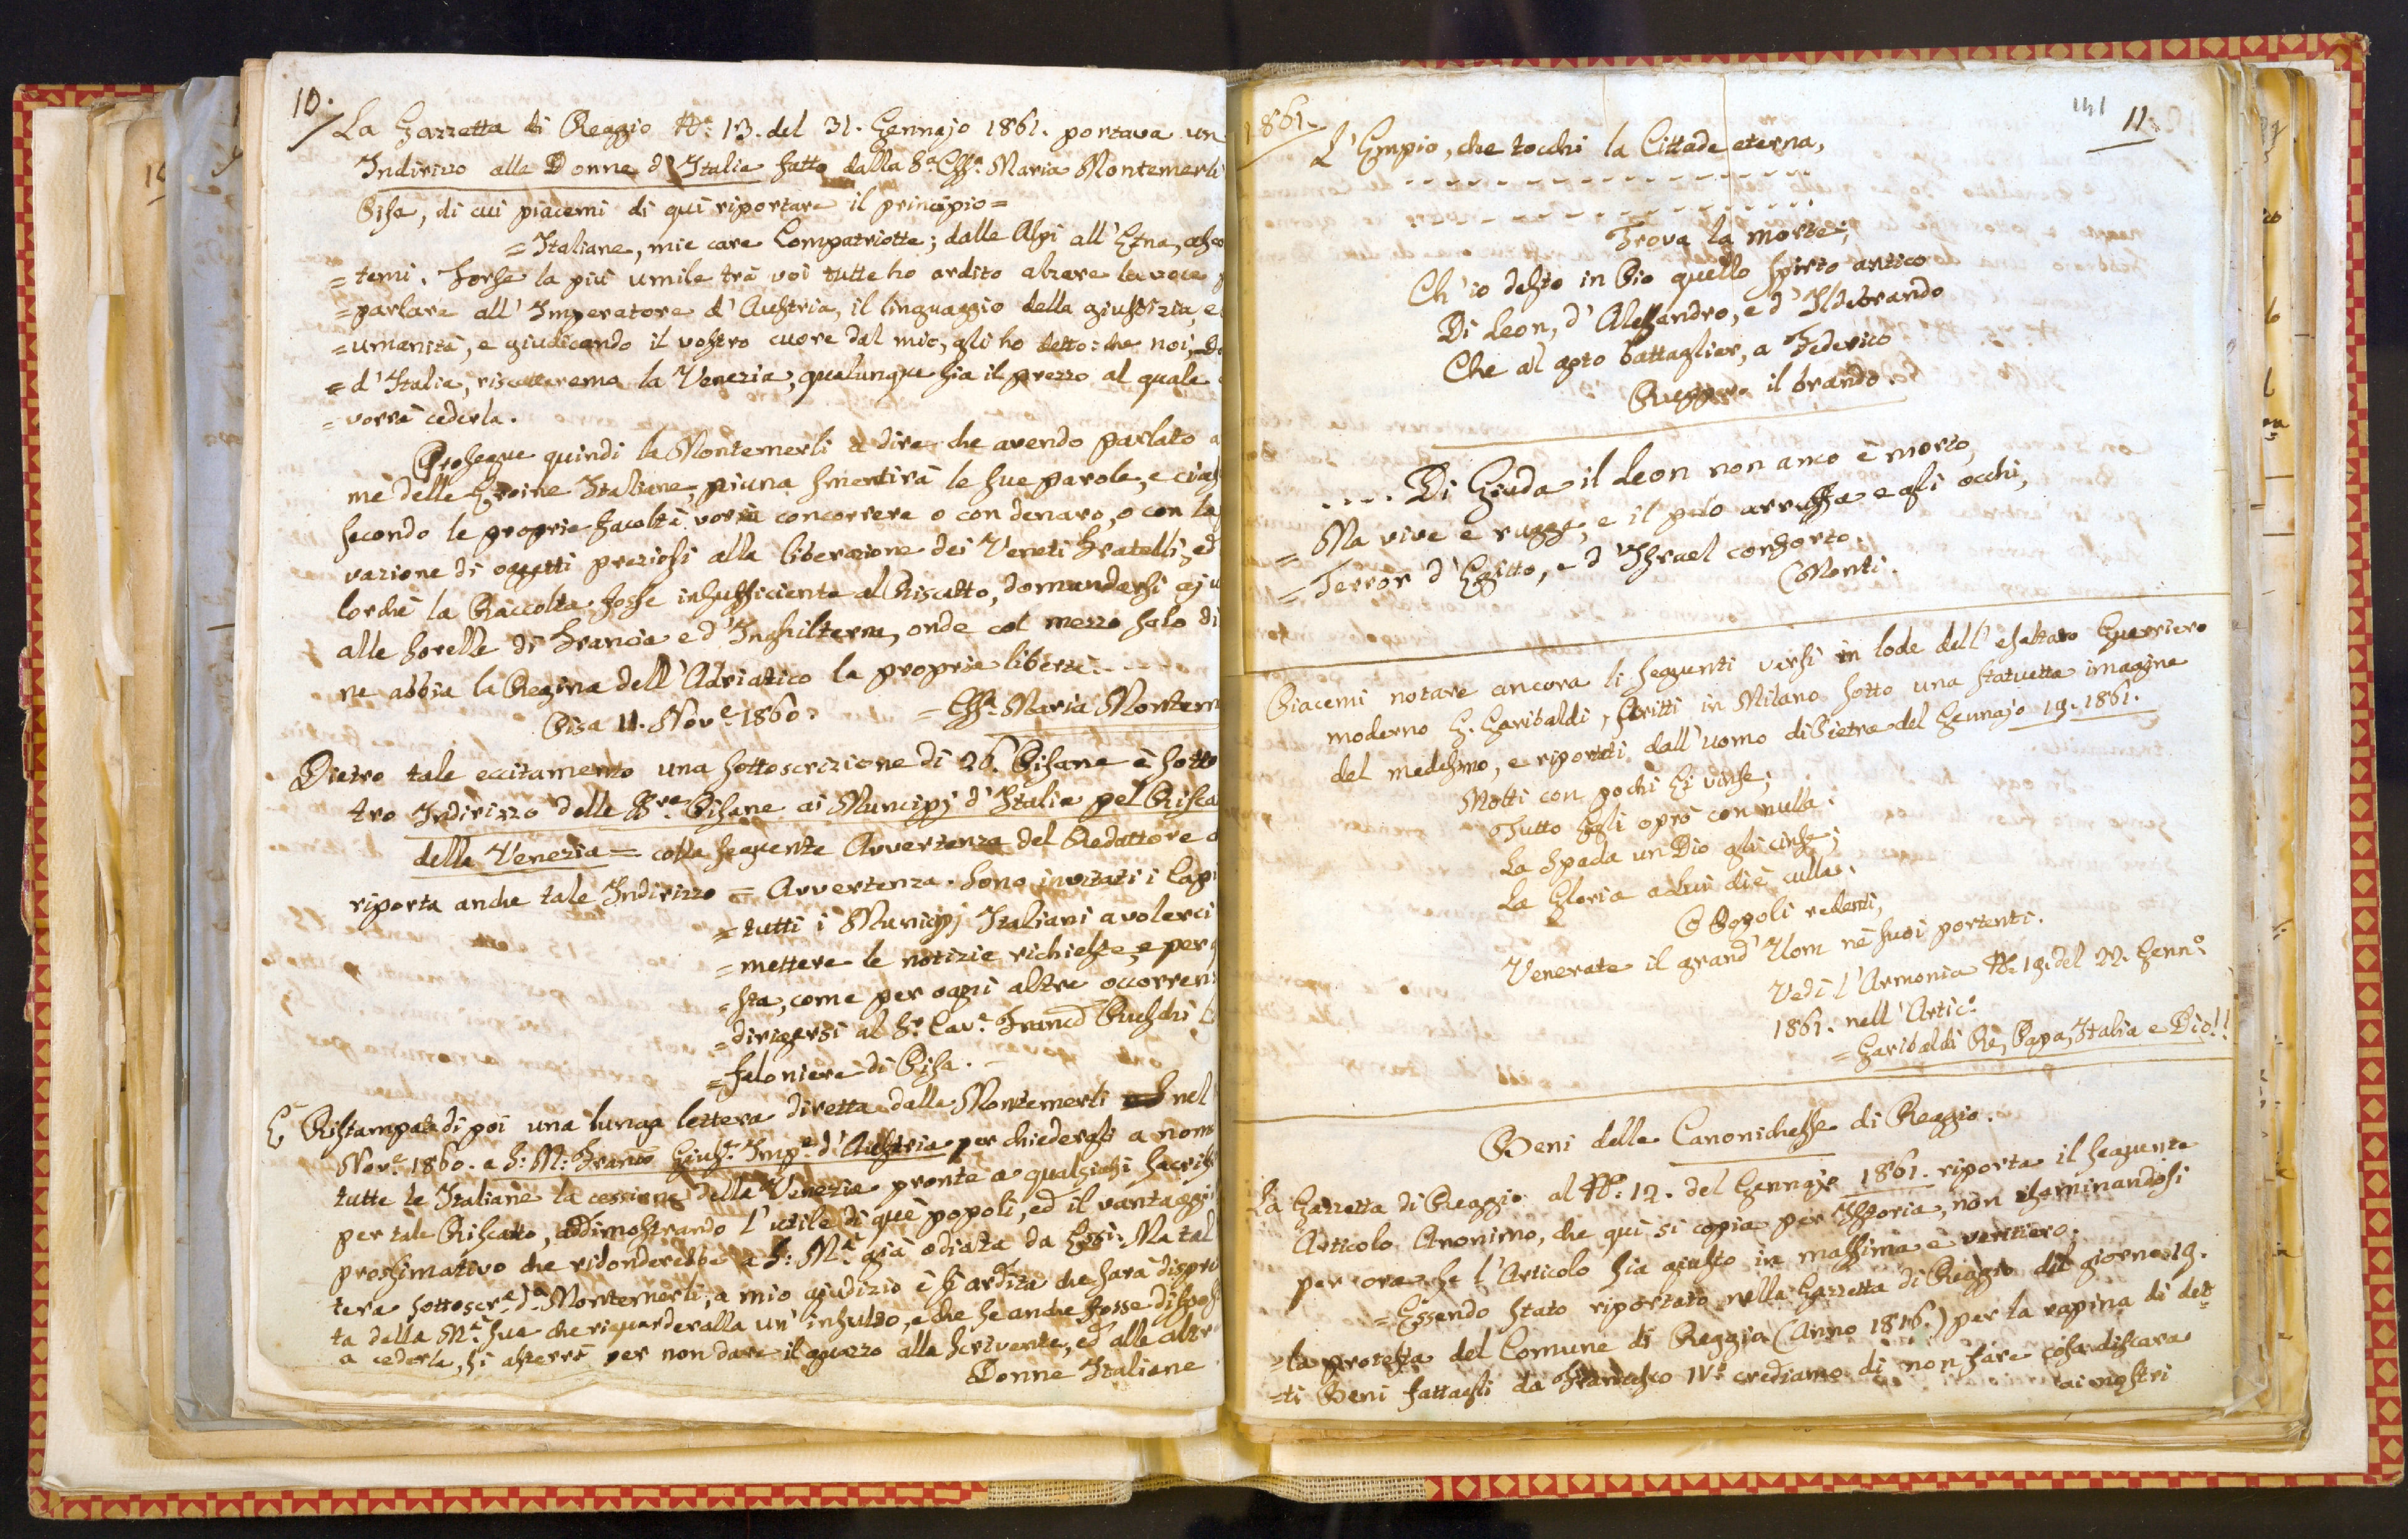 10.
La Gazzetta di Reggio N.º 13. del 31. Gennajo 1861. portava un
Indirizzo alle Donne d'Italia fatto dalla S.ª C.ssª Maria Montemerli
Pisa, di cui piacemi di quì riportare il principio=
= Italiane, mie care Compatriotte; dalle Alpi all'Etna, asco
= temi. Forse la più umile trà voi tutte ho ardito alzare la voce
= parlare all'Imperatore d'Austria, il linguaggio della giustizia, e
= umanità, e giudicando il vostro cuore dal mio, gli ho detto: che noi, Do
= d'Italia, riscatteremo la Venezia, qualunque sia il prezzo al quale
= vorrà cederla.
Prosegue quindi la Montemerli a dire che avendo parlato a
me delle Eroine Italiane, niuna smentirà le sue parole, e cias
secondo le proprie facoltà, vorrà concorrere o con denaro, o con la
vazione di oggetti preziosi alla liberazione dei Veneti Fratelli, ed
lorchè la Raccolta fosse insufficiente al Riscatto, domandarsi
alle sorelle di Francia e d'Inghilterra, onde col mezzo salo di
ne abbia la Regina dell'Adriatico la propria libertà.
Pisa 11. Nov.e 1860. = C.ssª Maria Montem
Dietro tale eccitamento una sottoscrizione di 26. Pisane è sotto
tro Indirizzo delle S.re Pisane ai Municipj d'Italia pel Risca
della Venezia = colla seguente Avvertenza del Redattore
riporta anche tale Indirizzo = Avvertenza. Sono invitati i Capi
= tutti i Municipj Italiani a volerci
= mettere le notizie richieste, e per
= sta, come per ogni altra occorren
= dirigersi al S.r Cav.e Franc.o Ruschi
= faloniere di Pisa.
È Ristampata di poi una lunga lettera diretta dalla Montemerli nel
Nov.e 1860. a S: M: Franc.o Gius.e Imp.e d'Austria per chiedergli a nom
tutte le Italiane la cessione della Venezia pronte a qualsiasi sacrifi
per tale Riscatto, addimostrando l'utile di què popoli, ed il vantaggi
prossimativo che ridonderebbe a S: M.ª già odiata da Essi. Ma tal
tera sottoscr.ª d.ª Montemerli, a mio giudizio è sì ardita che sarà dispre
ta dalla M.ª Sua che riguarderalla un'insulto, e che se anche fosse dispos
a cederla, si asterrà per non dare il guazzo alla scrivente, ed alle altre
Donne Italiane
1861.
141
11.
L'Empio, che tocchi la Cittade eterna,
Trova la morte;
Ch'io desto in Pio quello spirto antico
Di Leon, d'Alessandro, e d'Ildebrando
Che al agto battaglier, a Federico
Ruppero il brando.
.... Di Giuda il Leon non anco è morto,
= Ma vive e rugge, e il pelo arruffa e gli occhi,
= Terror d'Egitto, e d'Israel conforto.
(Monti.
Piacemi notare ancora li seguenti versi in lode dell'esaltato Guerriero
moderno G. Garibaldi, scritti in Milano sotto una statuetta imagine
del medesimo, e riportati dall'uomo di Pietra del Gennajo 19. 1861.
Molti con pochi Ei vinse;
Tutto Egli oprò con nulla:
La Spada un Dio gli cinse;
La Gloria a lui diè culla.
O Popoli redenti,
Venerate il grand'Uom nè suoi portenti.
Vedi l'Armonia N.º 19. del 22. Genn.º
1861. nell'Artic.º
= Garibaldi Rè, Papa, Italia e Dio!!
Beni delle Canonichesse di Reggio.
La Gazzetta di Reggio al N.º 12. del Gennajo 1861. riporta il seguente
Articolo Anonimo, che quì si copia per Istoria, non esaminandosi
per ora se l'Articolo sia giusto in massima e veritiero.
= Essendo stato riportato nella Gazzetta di Reggio del giorno 19.
= la protesta del Comune di Reggio (Anno 1816.) per la rapina di det=
= ti Beni fattagli da Francesco IV.º crediamo di non fare cosa discara
ai nostri